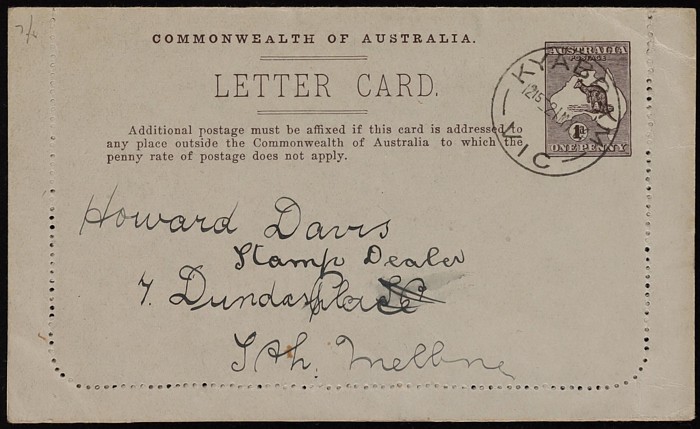 COMMONWEALTH OF AUSTRALIA.
LETTER CARD.
Additional postage must be affixed if this card is addressed to
any place outside the Commonwealth of Australia to which the
penny rate of postage does not apply.
AUSTRALIA
POSTAGE
1d
ONE PENNY
KYABRAM
VIC
Howard Davis
Stamp Dealer
7. Dundas place
Sth. Melbne